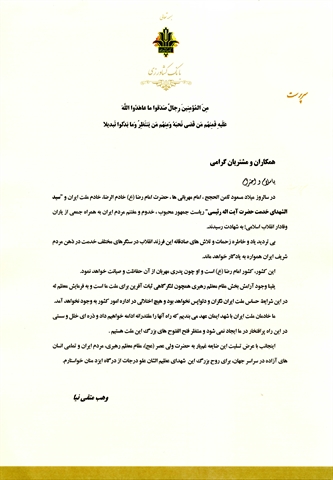 بانک کشاورزی
سرپرست
مِنَ المُؤمِنینَ رِجالٌ صَدَقوا ما عاهَدُوا اللَّهَ
عَلَیهِ فَمِنهُم مَن قَضی نَحبَهُ وَمِنهُم مَن یَنتَظِرُ وَما بَدَّلوا تَبدیلا
همکاران و مشتریان گرامی
باسلام و احترام
در سالروز میلاد مسعود ثامن الحجج، امام مهربانی ها ، حضرت رضا (ع) خادم الرضا، خادم ملت ایران و "سید
الشهدای خدمت حضرت آیت اله رئیسی" ریاست جمهور محبوب ، خدوم و مغتنم مردم ایران به همراه جمعی از یاران
وفادار انقلاب اسلامی؛ به شهادت رسیدند.
بی تردید یاد و خاطره زحمات و تلاش های صادقانه این فرزند انقلاب در سنگرهای مختلف خدمت در ذهن مردم
شریف ایران همواره به یادگار خواهد ماند.
این کشور، کشور امام رضا (ع) است و او چون پدری مهربان از آن حفاظت و صیانت خواهد نمود.
یقینا وجود آرامش بخش مقام معظم رهبری همچون لنگرگاهی ثبات آفرین برای ملت ما است و به فرمایش معظم له
در این شرایط حساس ملت ایران نگران و دلواپس نخواهد بود و هیچ اختلالی در اداره امور کشور به وجود نخواهد آمد.
ما خادمان ملت ایران با شهد ایمان عهد می بندیم که راه آنها را مقتدرانه ادامه خواهیم داد و ذره ای خلل و سستی
در این راه پرافتخار در ما ایجاد نمی شود و منتظر فتح الفتوح های بزرگ این ملت هستیم .
اینجانب با عرض تسلیت این ضایعه غم‌بار به حضرت ولی عصر (عج)، مقام معظم رهبری، مردم ایران و تمامی انسان
های آزاده در سراسر جهان، برای روح بزرگ این شهدای عظیم الشان علو درجات از درگاه ایزد منان خواستارم.
وهب متقی نیا